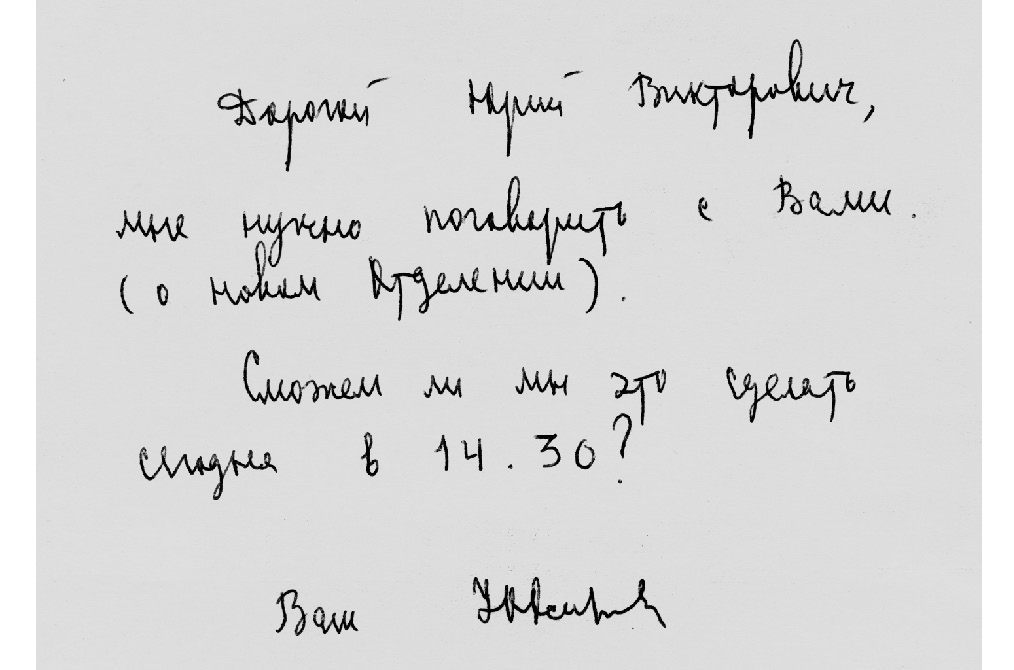 Дорогой Юрий Викторович,
мне нужно поговорить с Вами.
(о новом Отделении).
Сможем ли мы это сделать
сегодня в 14.30?
Ваш